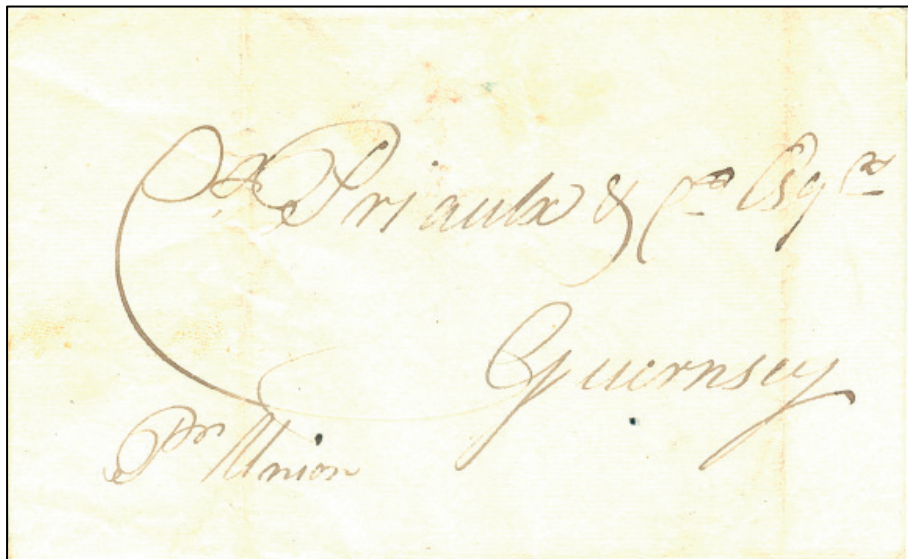 Priaulx & Co Esqrs
Guernsey
Pr Union